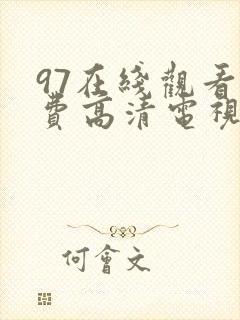 97在綫觀看
費高清電視
何會文